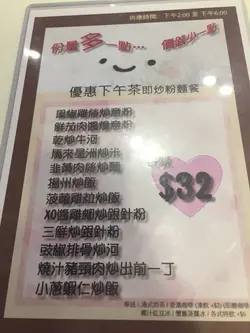 供應時間: 下午2:00 至 下午6:00
份量多一點... 價錢少一點
優惠下午茶即炒粉麵餐
鮮茄肉醬燴意粉
乾炒牛河
馬來星洲炒米
韭黃肉絲炒麵
揚州炒飯
菠蘿雞粒炒飯
$32
三鮮炒銀針粉
豉椒排骨炒河
燒汁豬頸肉炒出前一丁
小蔥蝦仁炒飯